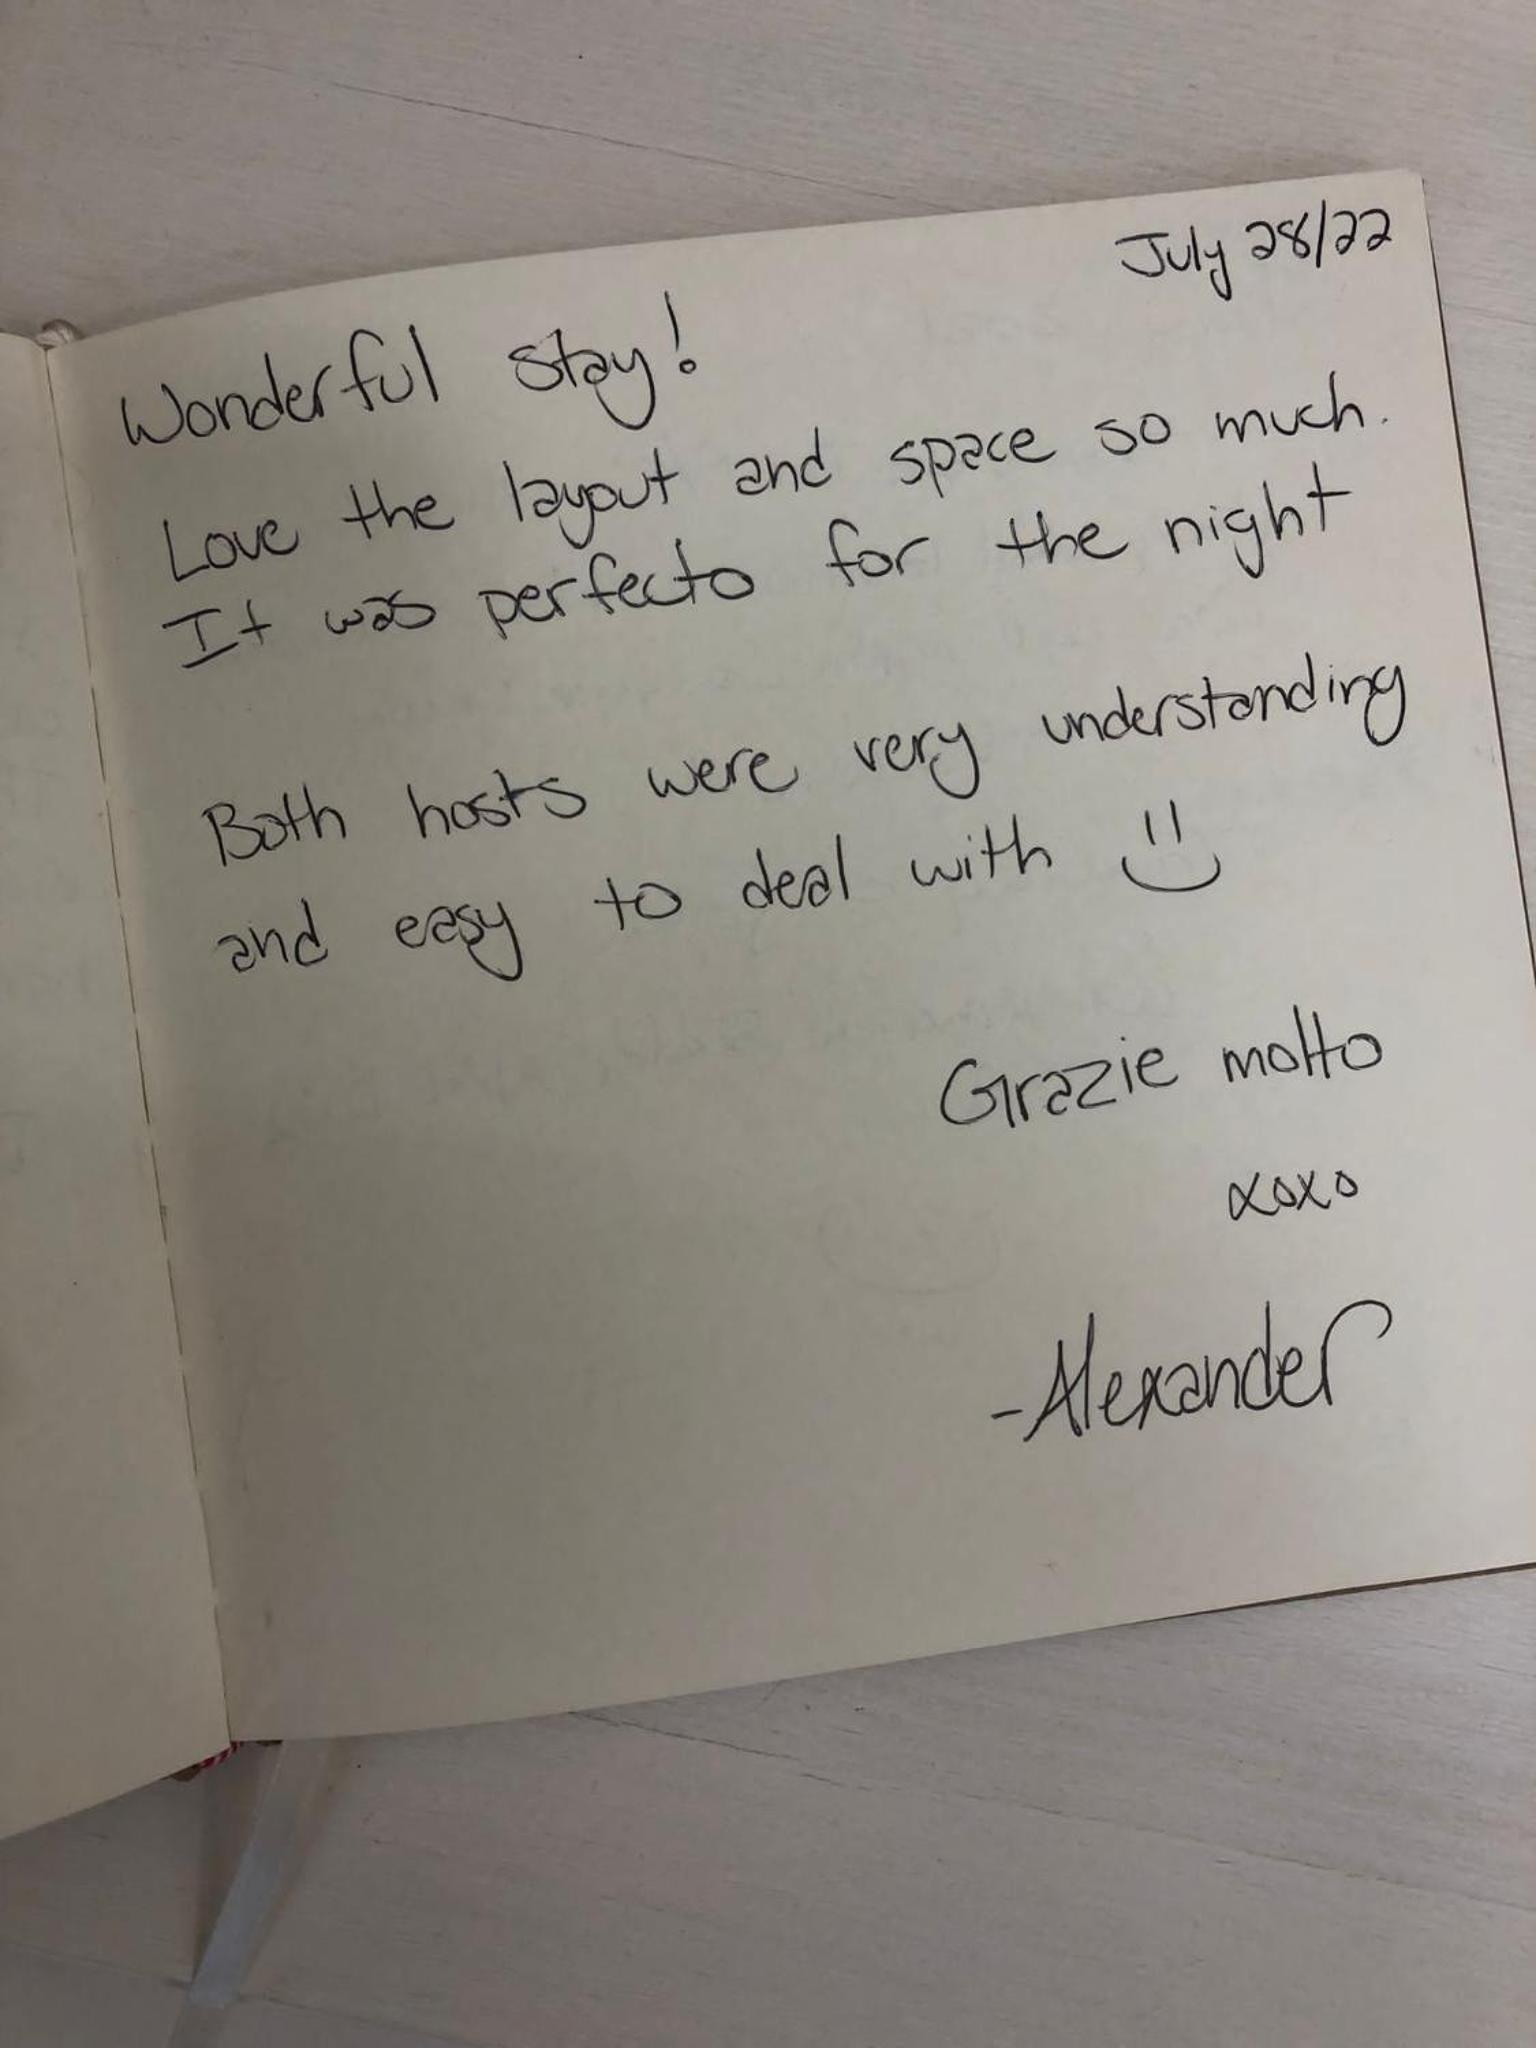 July 28/22
Wonderful stay!
Love the layout and space so much.
It was perfecto for the night
Both hosts were very understanding
and easy to deal with
Grazie molto
xoxo
-Alexander